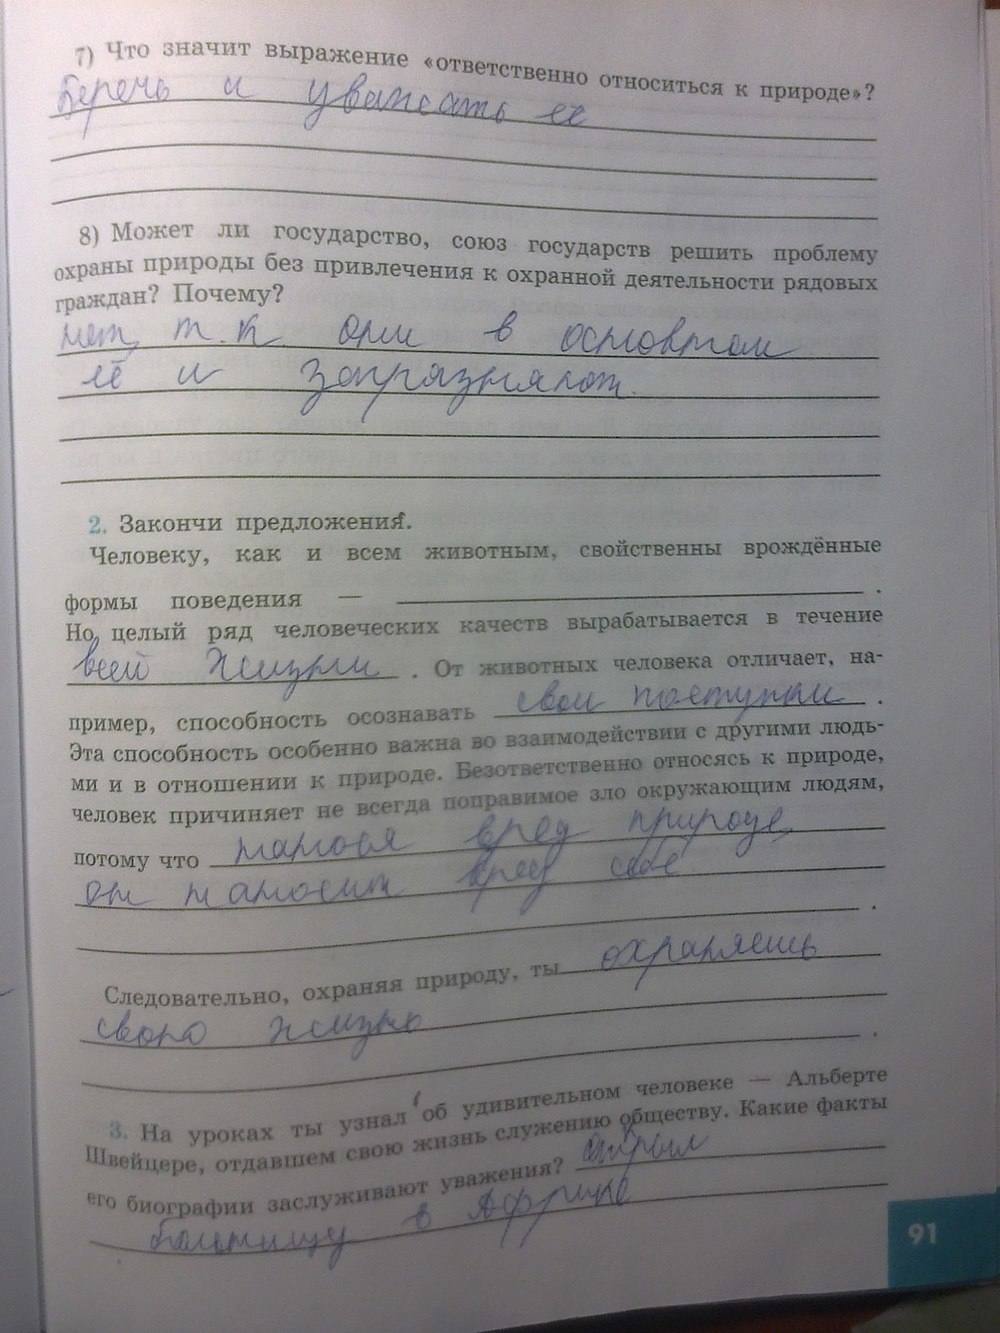 7) Что значит выражение «ответственно относиться к природе»?
Беречь и уважать ее
8) Может ли государство, союз государств решить проблему
охраны природы без привлечения к охранной деятельности рядовых
граждан? Почему?
нет, т.к они в основном
её и загрязняют.
2. Закончи предложения.
Человеку, как и всем животным, свойственны врождённые
формы поведения — .
Но целый ряд человеческих качеств вырабатывается в течение
всей жизни . От животных человека отличает, на-
пример, способность осознавать свои поступки .
Эта способность особенно важна во взаимодействии с другими людь-
ми и в отношении к природе. Безответственно относясь к природе,
человек причиняет не всегда поправимое зло окружающим людям,
потому что нанося вред природе,
он наносит вред себе
.
Следовательно, охраняя природу, ты охраняешь
свою жизнь
.
3. На уроках ты узнал об удивительном человеке — Альберте
Швейцере, отдавшем свою жизнь служению обществу. Какие факты
его биографии заслуживают уважения? открыл
больницу в Африке
91